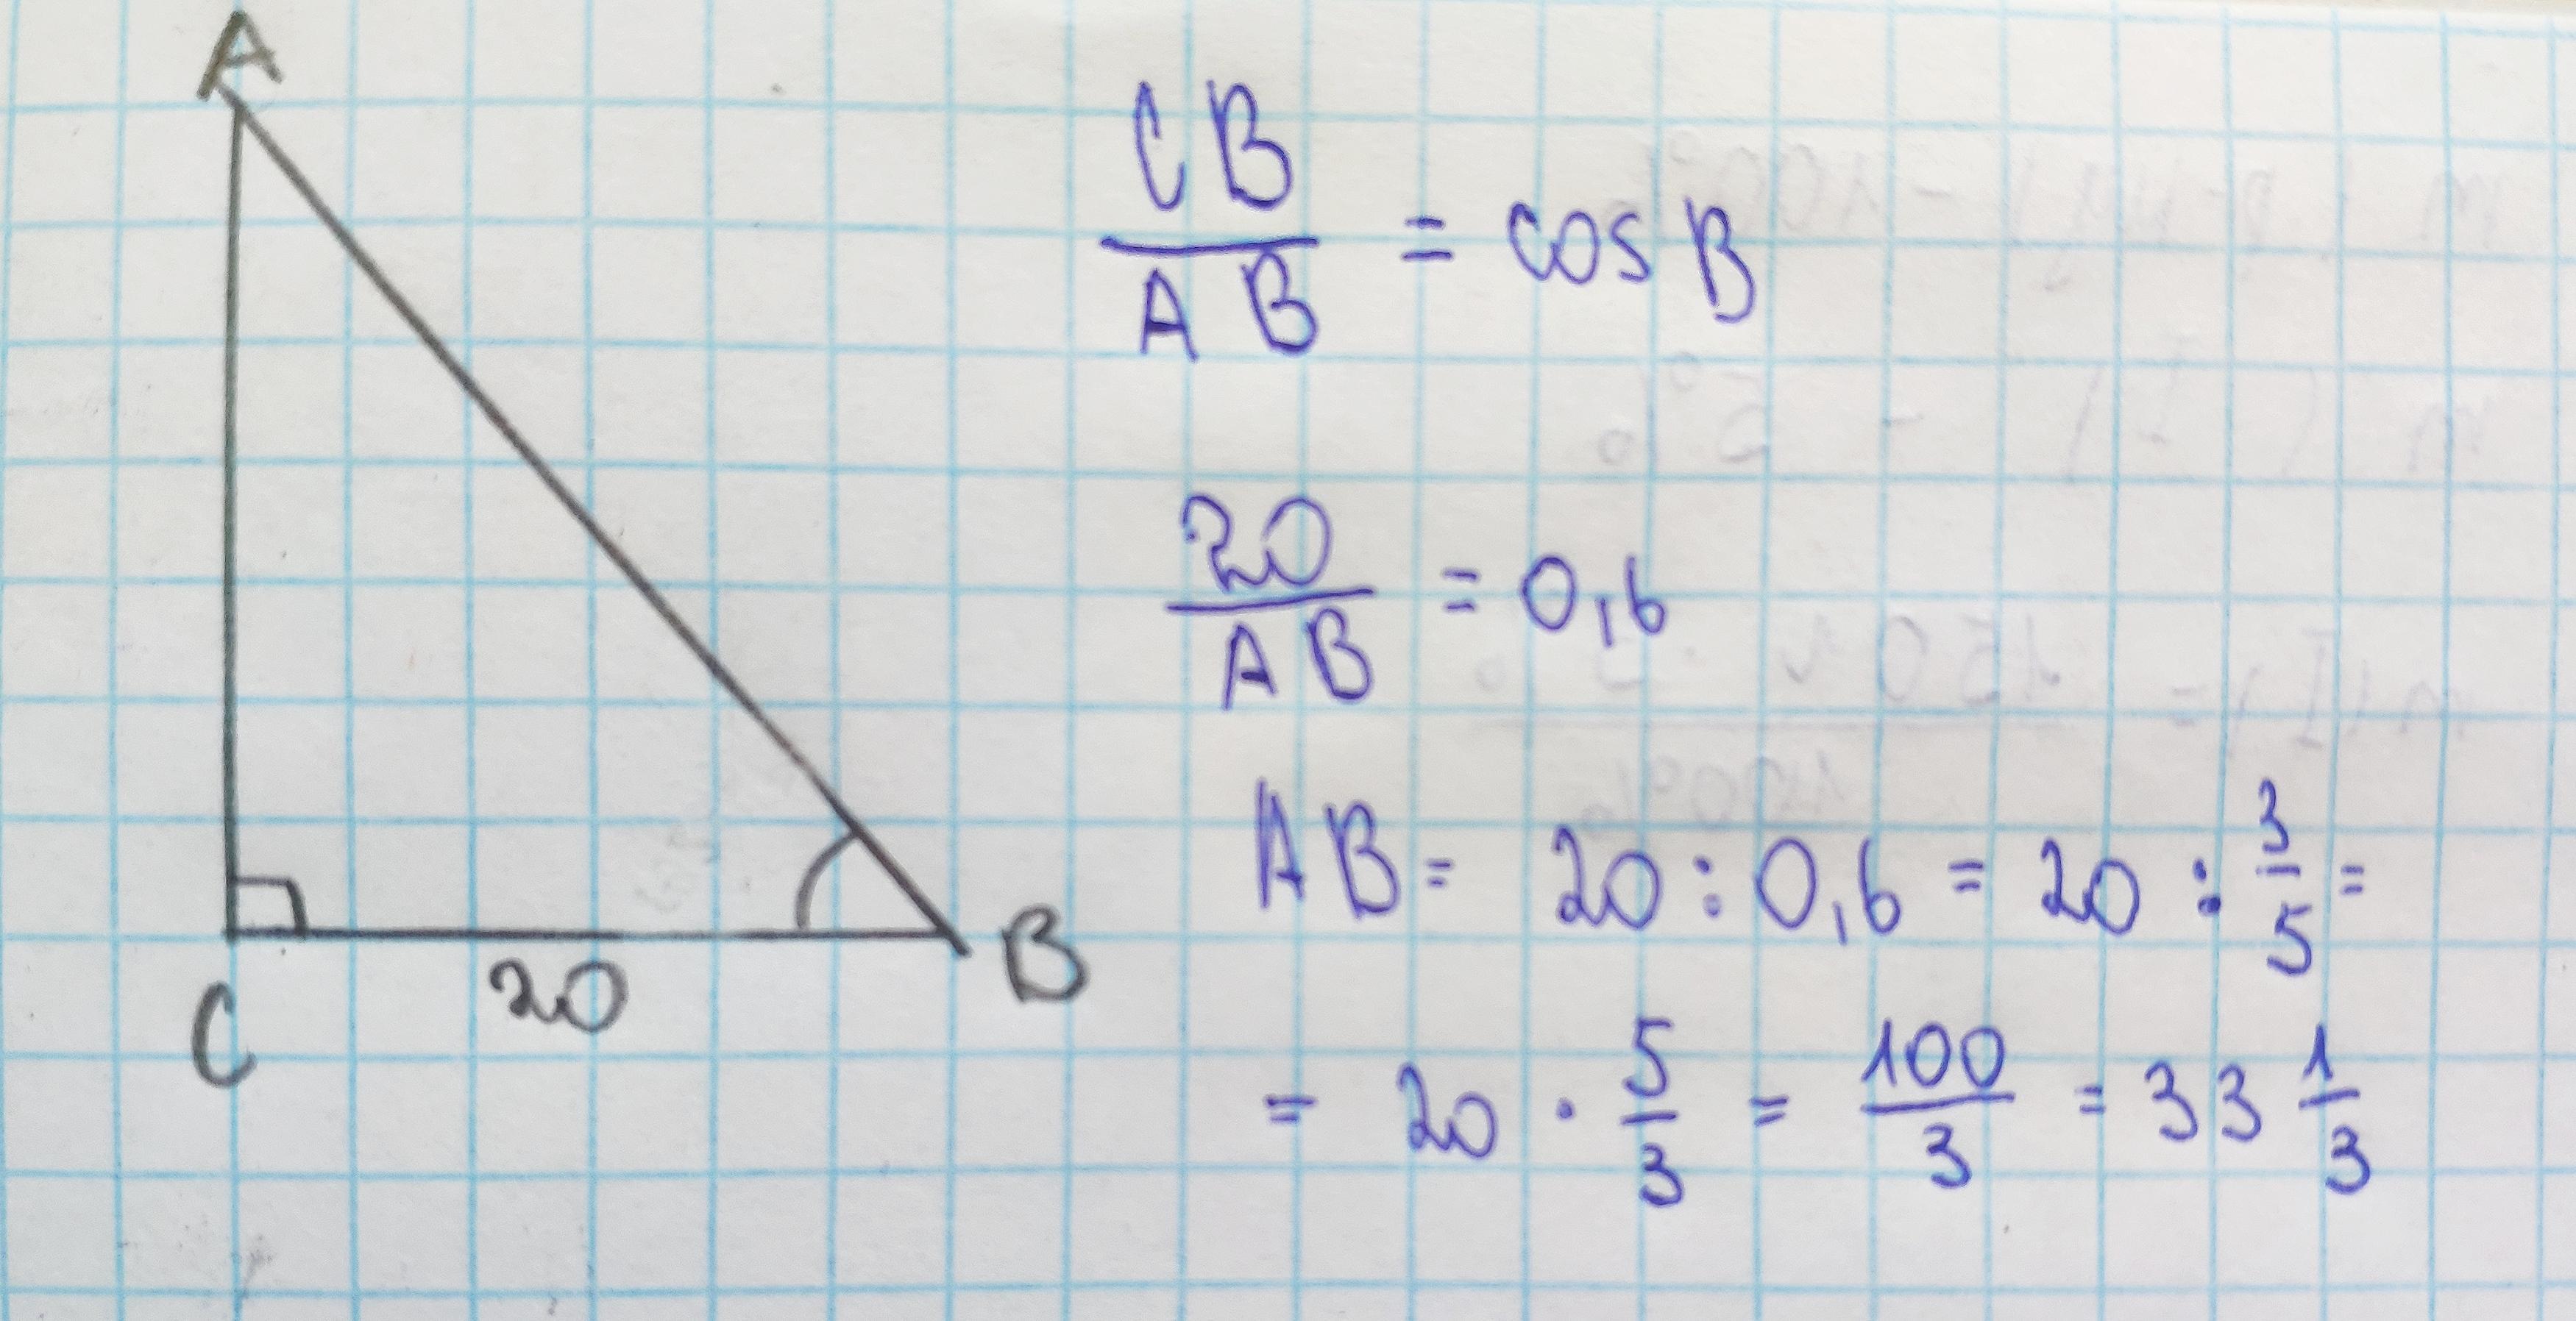 A
C
20
B
CB/AB = cos B
20/AB = 0,6
AB = 20 : 0,6 = 20 : 3/5 =
= 20 · 5/3 = 100/3 = 33 1/3